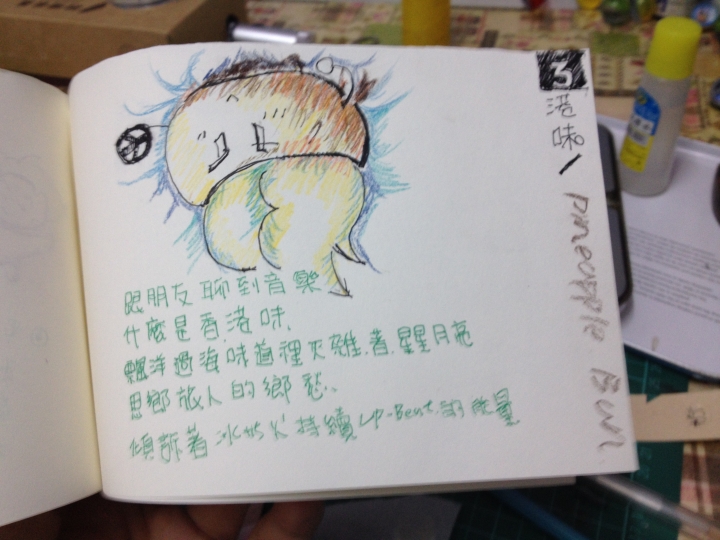 3
港味
Pineapple Bun
跟朋友聊到音樂
什麼是香港味
飄洋過海味道裡夾雜著星星月亮
思鄉旅人的鄉愁
傾訴著冰 持續 up-Beat 的能量